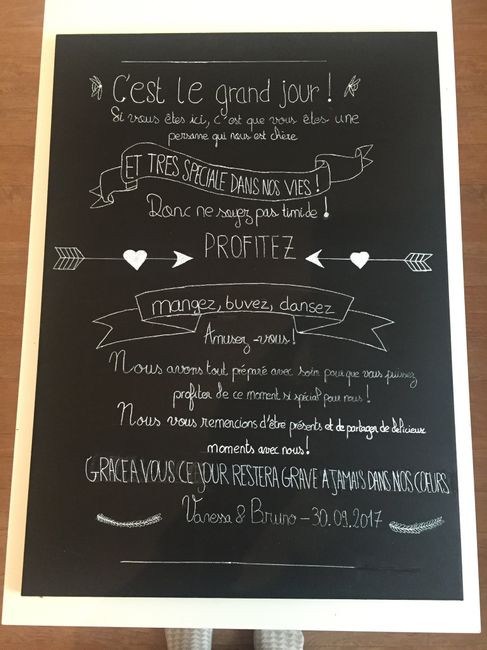 C'est le grand jour !
Si vous êtes ici, c'est que vous êtes une
personne qui nous est chère
ET TRES SPECIALE DANS NOS VIES !
Donc ne soyez pas timide !
PROFITEZ
mangez, buvez, dansez
Amusez-vous !
Nous avons tout préparé avec soin pour que vous puissiez
profiter de ce moment si spécial pour nous !
Nous vous remercions d'être présents et de partager de délicieux
moments avec nous !
GRACE A VOUS CE JOUR RESTERA GRAVE A JAMAIS DANS NOS COEURS
Vanessa & Bruno - 30.09.2017